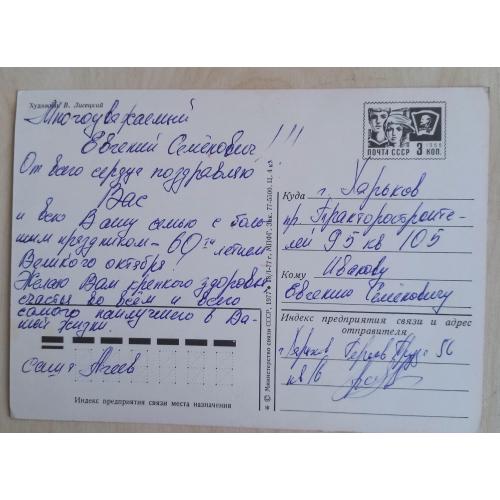 Художник В. Лисецкий
Многоуважаемый
Евгений Семёнович!!!
От всего сердца поздравляю
Вас
и всю Вашу семью с боль-
шим праздником - 60 ти летием
Великого октября!
Желаю Вам крепкого здоровья
счастья во всём и всего
самого наилучшего в Ва-
шей жизни.
семья Агеев
Индекс предприятия связи места назначения
© Министерство связи СССР, 1977
МПФГ. Зак. 77-5500. П. 4 к.
1966
ПОЧТА СССР 3 КОП.
Куда г. Харьков
пр. Тракторостроите-
лей 95 кв 105
Кому Ивакову
Евгению Семёновичу
Индекс предприятия связи и адрес
отправителя
г. Харьков Героев Труда 56
кв